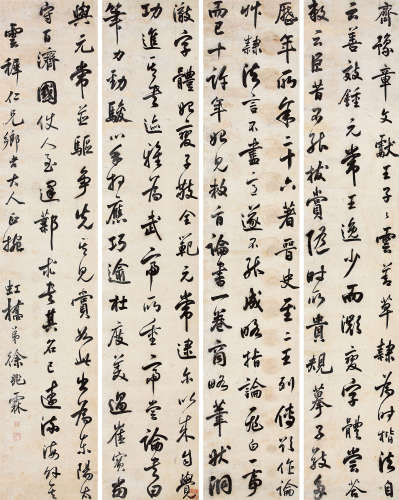 齊豫章文獻王子子雲善草隸為時楷法自
云善效鍾元常王逸少而微變字體嘗答
敕云臣昔不能拔賞隨時所貴規摹子敬多
歷年所年二十六著晉史至二王列傳欲作論
艸隸法言不盡意遂不能成略指論飛白一事
而已十許年始見敕旨論書一卷商略筆狀洞
澈字體始變子敬全範元常逮爾以來自覺
功進其書迹雅為武帝所重帝嘗論書曰
筆力勁駿心手相應巧逾杜度美過崔寔當
與元常並驅爭先其見賞如此出為東陽太
守百濟國使人至建鄴求書其名已遠流海外矣
雲穉仁兄鄉大人正捥
虹橋弟徐兆霖